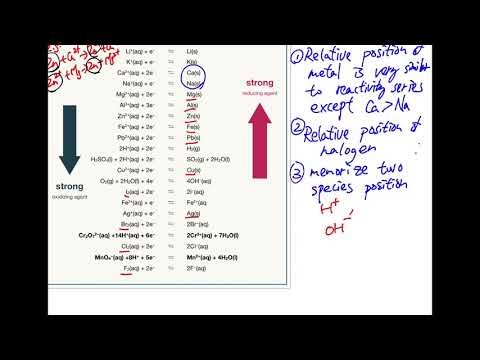 Zn + Cu²⁺ → Zn²⁺ + Cu
Li⁺(aq) + e⁻ = Li(s)
K⁺(aq) + e⁻ = K(s)
Ca²⁺(aq) + 2e⁻ = Ca(s)
Na⁺(aq) + e⁻ = Na(s)
Mg²⁺(aq) + 2e⁻ = Mg(s)
Al³⁺(aq) + 3e⁻ = Al(s)
Zn²⁺(aq) + 2e⁻ = Zn(s)
Fe²⁺(aq) + 2e⁻ = Fe(s)
Pb²⁺(aq) + 2e⁻ = Pb(s)
2H⁺(aq) + 2e⁻ = H₂(g)
H₂SO₄(l) + 2H⁺(aq) + 2e⁻ = SO₂(g) + 2H₂O(l)
Cu²⁺(aq) + 2e⁻ = Cu(s)
O₂(g) + 2H₂O(l) + 4e⁻ = 4OH⁻(aq)
I₂(aq) + 2e⁻ = 2I⁻(aq)
Fe³⁺(aq) + e⁻ = Fe²⁺(aq)
Ag⁺(aq) + e⁻ = Ag(s)
Br₂(aq) + 2e⁻ = 2Br⁻(aq)
Cr₂O₇²⁻(aq) +14H⁺(aq) + 6e⁻ = 2Cr³⁺(aq) + 7H₂O(l)
Cl₂(aq) + 2e⁻ = 2Cl⁻(aq)
MnO₄⁻(aq) +8H⁺ + 5e⁻ = Mn²⁺(aq) + 4H₂O(l)
F₂(aq) + 2e⁻ = 2F⁻(aq)
strong
oxidizing agent
strong
reducing agent
① Relative position of
metal is very similar
to reactivity series
except Ca > Na
② Relative position of
halogen
③ memorize two
species position
H⁺
OH⁻